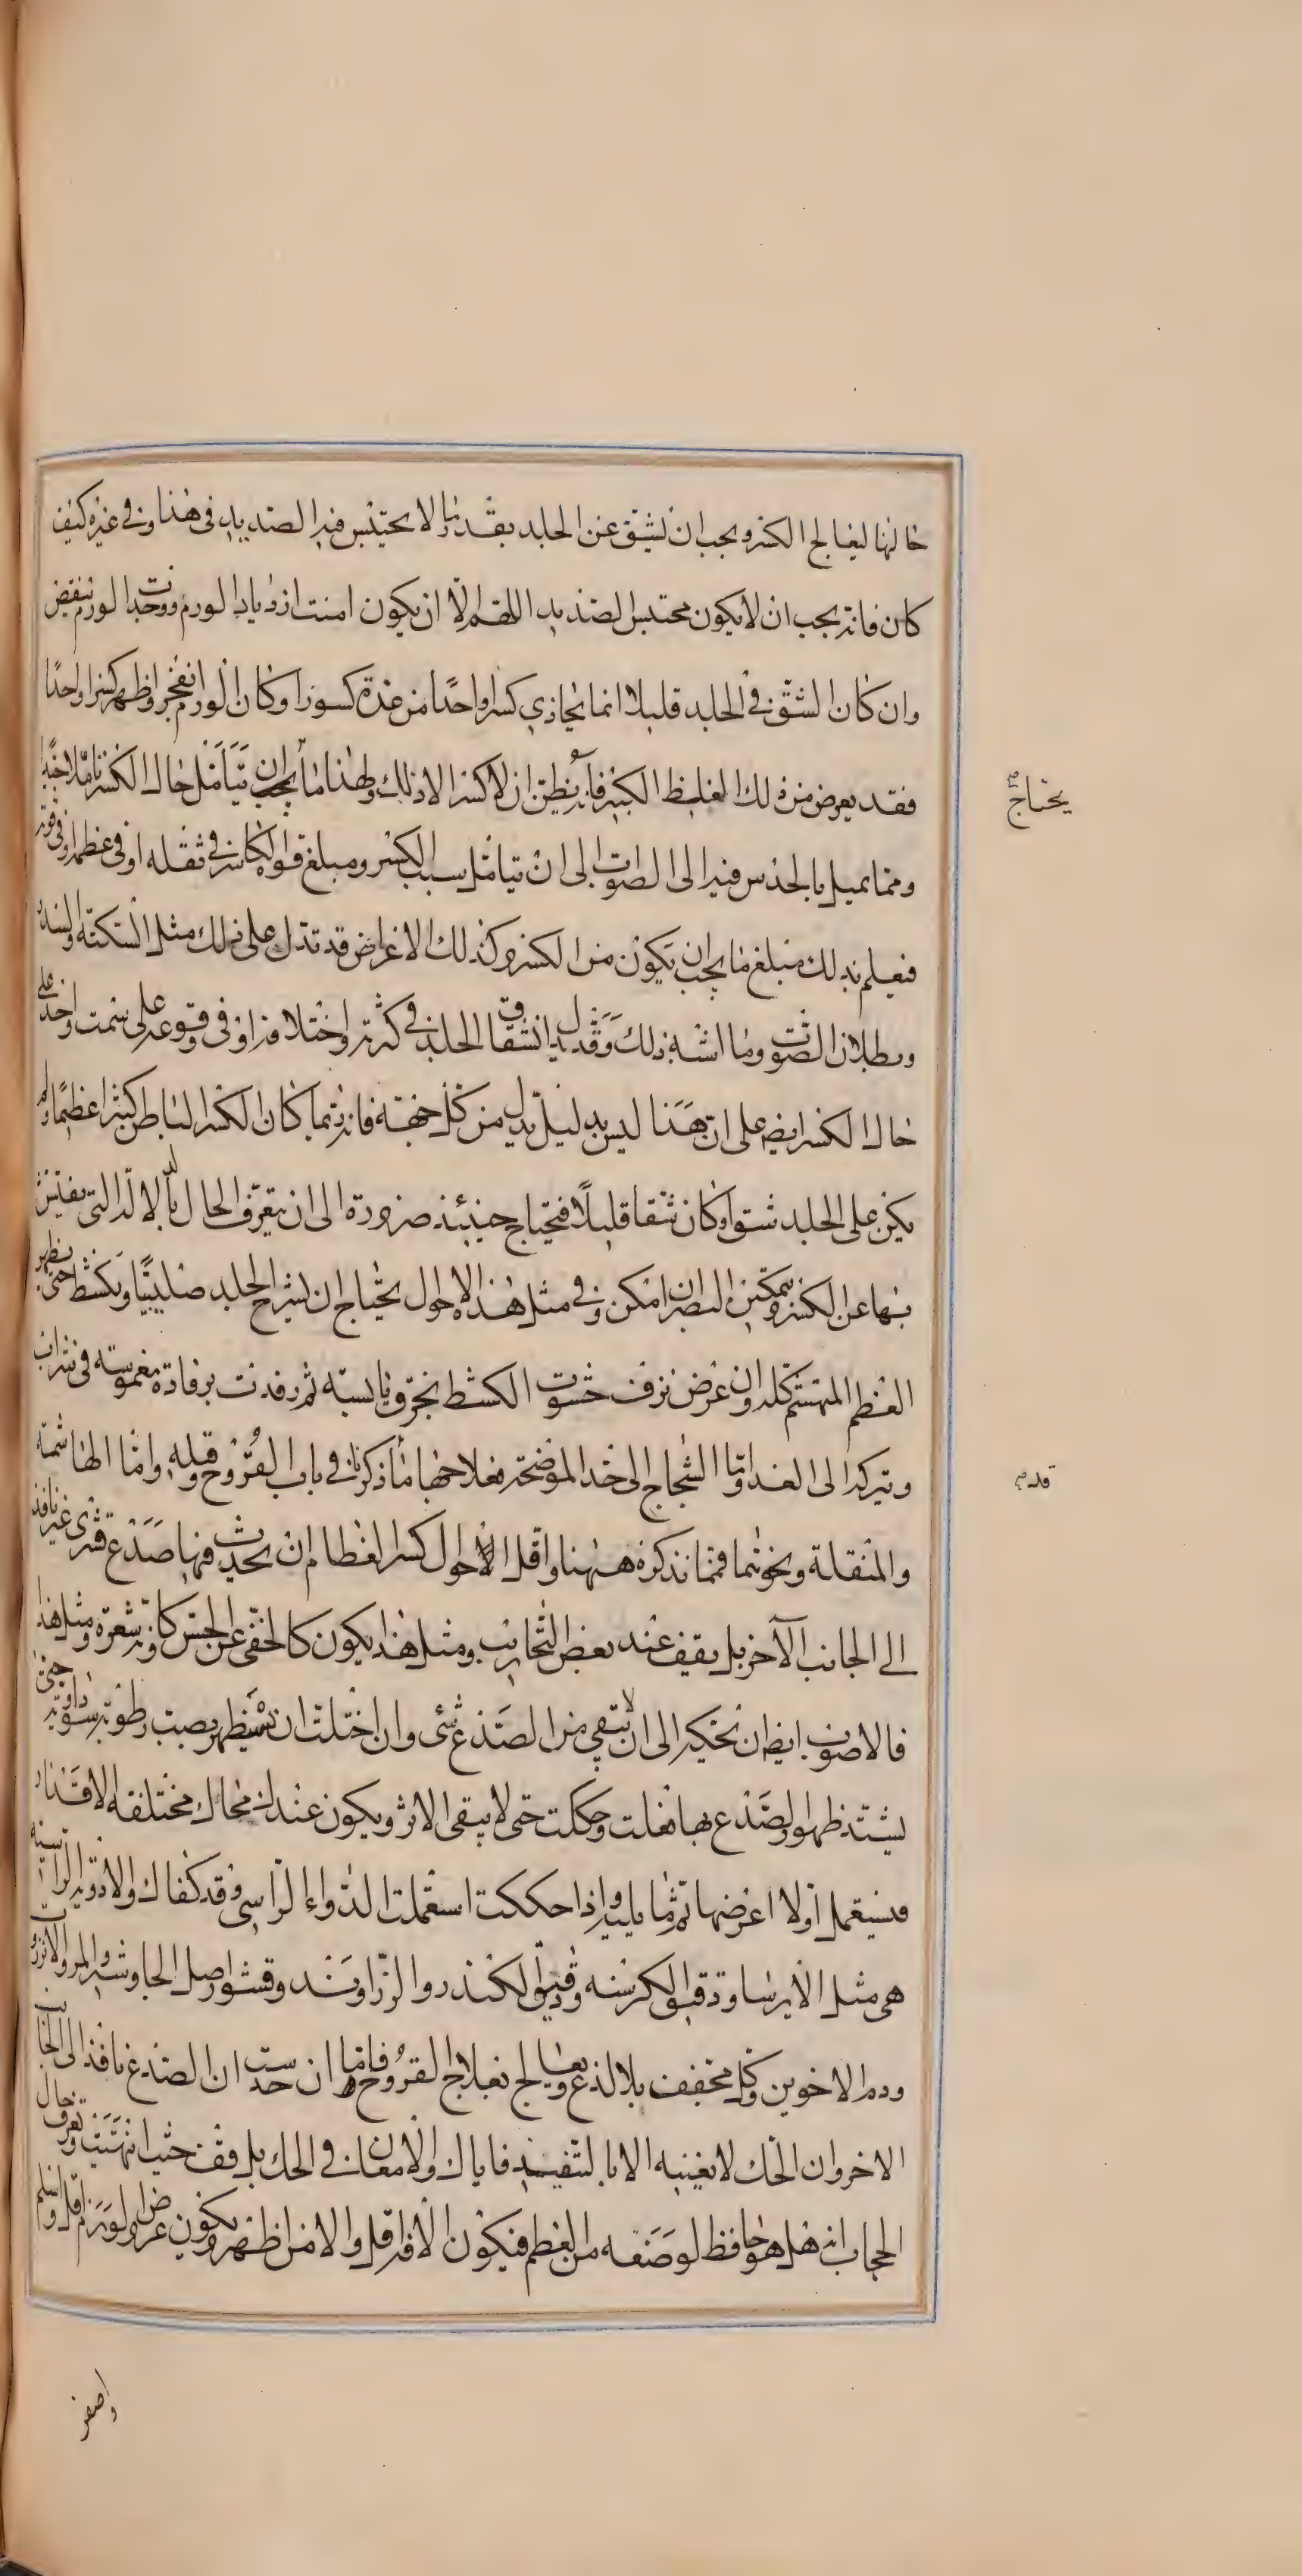 حالها ليعالج الكسر ويجب ان تشق عن الجلد بقدر ما لا يحتبس فيه الصديد في هذا وفي غيره كيف
كان فانه يجب ان لا يكون محتبس الصديد اللهم الا ان يكون امنت ازدياد الورم ووجدت الورم ينقص
وان كان الشق في الجلد قليلا انما يحاذي كسرا واحدا من عدة كسور او كان الورم انفجر او ظهر كسرا واحدا
فقد يعرض من ذلك الغلظ الكبير فانه يظن ان لا كسر الا ذلك ولهذا ما يجب ان يتامل حال الكسر تاملا جيدا
يحتاج صح
ومما يميل بالحدس فيه الى الصواب الى ان تتامل سبب الكسر ومبلغ قوة الكاسر في ثقله او في عظمه او في قوته
فيعلم بذلك مبلغ ما يجب ان يكون من الكسر وكذلك الاعراض قد تدل على ذلك مثل السكتة والسدر
وبطلان الصوت وما اشبه ذلك وقد يدل انشقاق الجلد في كثرته واختلافه او في وقوعه على سمت واحد على
حال الكسر ايضا على ان هذا ليس بدليل يدل من كل جهة فانه ربما كان الكسر الباطن كبيرا عظيما ولم
يكن على الجلد شق او كان شقا قليلا فيحتاج حينئذ ضرورة الى ان يتعرف الحال بالآلة التي يفتش
بها عن الكسر ويمكن البصر ان امكن وفي مثل هذه الاحوال يحتاج ان يشرح الجلد صليبيا ويكشط حتى يظهر
العظم المتهشم كله وان عرض نزف حشوت الكشط بخرق يابسة ثم رفدت برفادة مغموسة في شراب
ويترك الى الغد واما الشجاج الى حد الموضحة فعلاجها ما ذكرناه في باب القروح وقبله واما الهاشمة
قدم
والمنقلة ونحوهما فمما نذكره ههنا واقل الاحوال كسر العظام ان يحدث فيها صدع قشري غير نافذ
الى الجانب الآخر بل يقف عند بعض التجاويف ومثل هذا يكون كالخفي عن الحس كانه شعرة ومثل هذا
فالاصوب ايضا ان تحكه الى ان لا يبقى من الصدع شئ وان اختلت ان تستظهر بصب رطوبة سوداوية حتى
يشتد ظهور الصدع بها فعلت وحككت حتى لا يبقى الاثر ويكون عندك محاك مختلفة الاقدار
فيستعمل اولا اعرضها ثم ما يليه واذا حككت استعملت الدواء الراسي وقد كفاك والادوية الراسية
هي مثل الايرسا ودقيق الكرسنه ودقيق الكندر والزراوند وقشور اصل الجاوشير والمر والانزروت
ودم الاخوين وكل مجفف بلا لذع ويعالج بعلاج القروح فاما ان حدست ان الصدع نافذ الى الجانب
الاخر وان الحك لا يغنيه الا بالتنفيذ فاياك والامعان في الحك بل قف حيث انتهيت وتعرف حال
الحجاب انه هل هو حافظ لوضعه من العظم فيكون الآفة اقل والامن اظهر ويكون عرض الورم اقل واسلم
واصغر